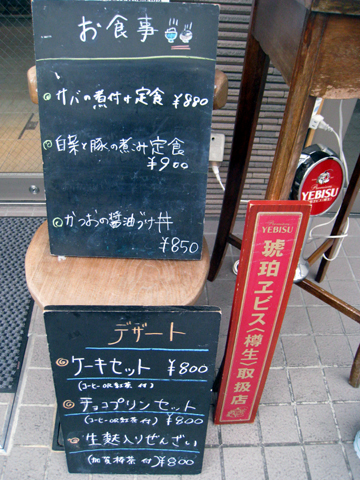 お食事
サバの煮付け定食 ¥880
白菜と豚の煮込み定食
¥900
かつおの醤油づけ丼
¥850
デザート
ケーキセット ¥800
(コーヒーOR紅茶 付)
チョコプリンセット
(コーヒーOR紅茶 付) ¥800
生麩入りぜんざい
(加賀棒茶 付) ¥800
YEBISU
琥珀ヱビス〈樽生〉取扱店
YEBISU